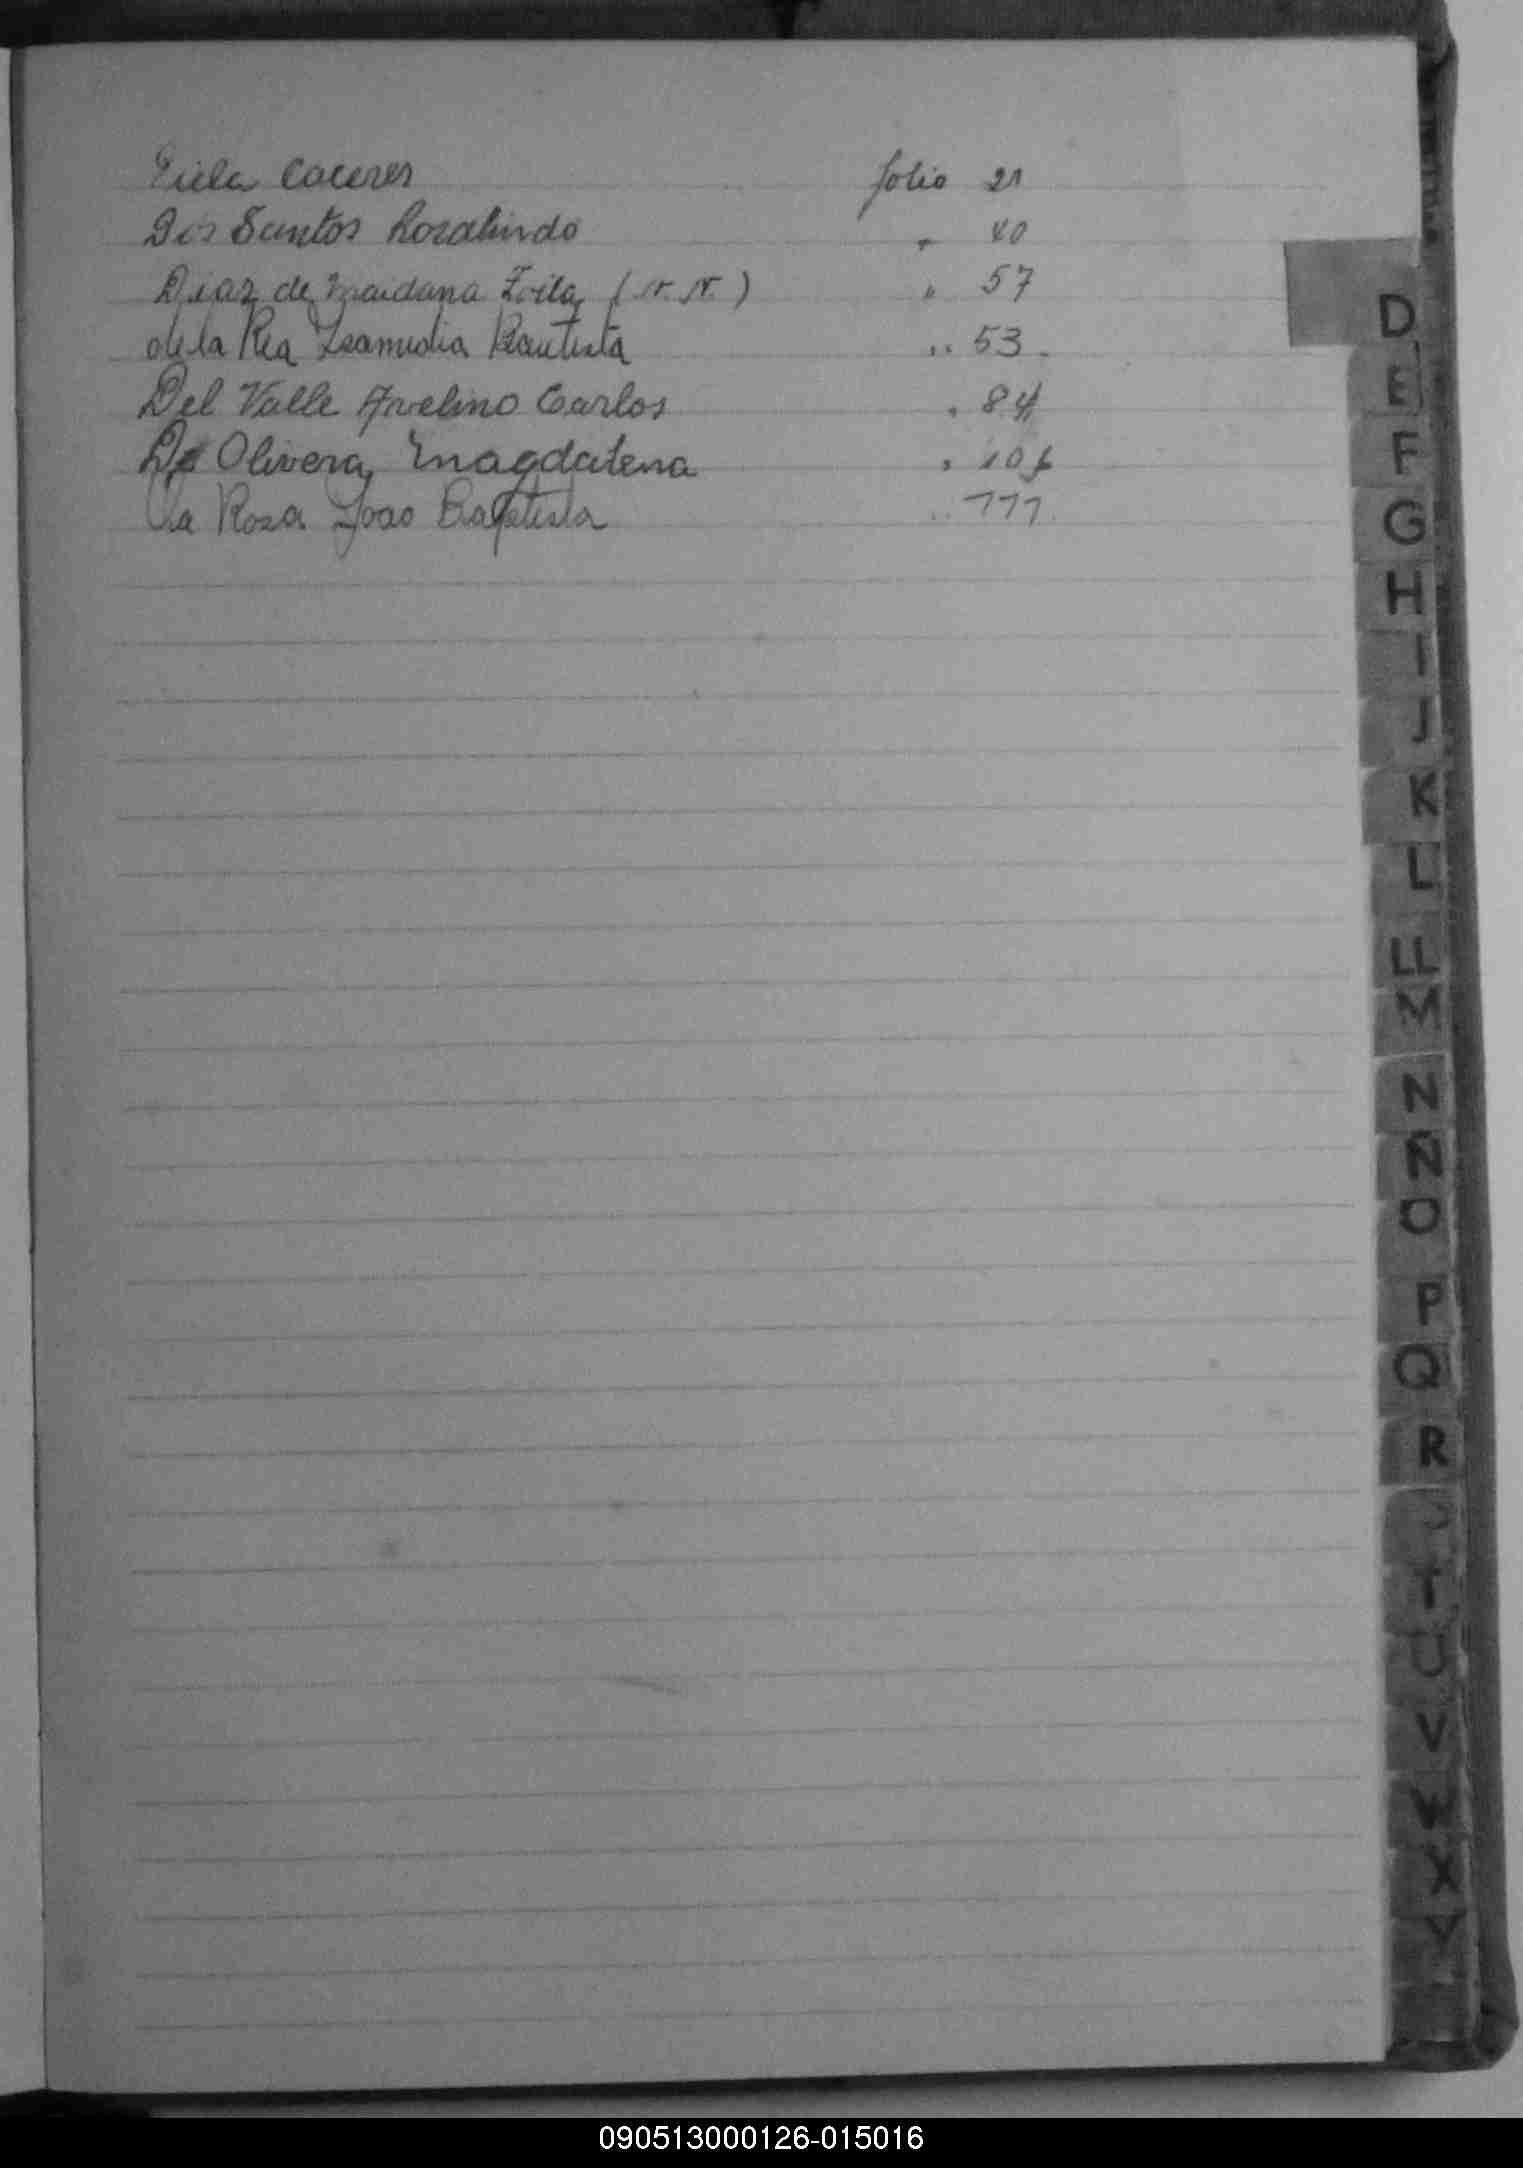 Caceres folio 21
Dos Santos Rosalindo " 40
Diaz de Maidana Zoila (N.N.) " 57
de la Bautista " 53
Del Valle Avelino Carlos " 84
De Olivera, Magdalena " 106
la Rosa Joao Baptista " 111
D
E
F
G
H
I
J
K
L
LL
M
N
Ñ
O
P
Q
R
T
U
V
W
X
Y
090513000126-015016